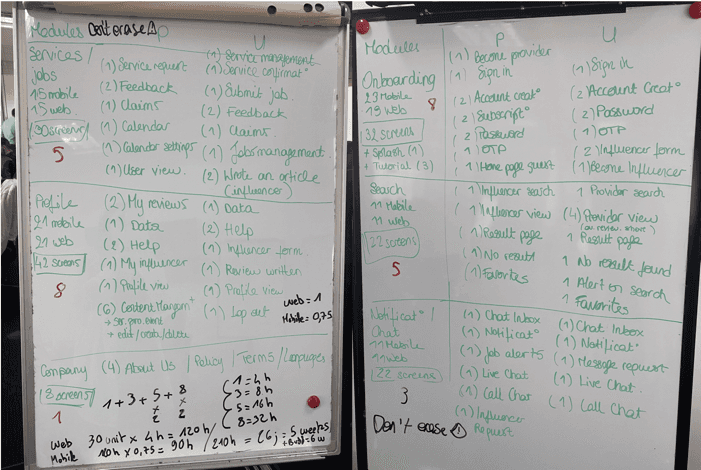 Modules Don't erase ⚠ P
U
Services /
jobs
15 mobile
15 web
30 screens
5
(1) Service request
(2) Feedback
(1) Claims
(1) Calendar
(1) Calendar settings
(1) User view.
(1) Service management
(1) Service confirmat°
(1) Submit job.
(2) Feedback
(1) Claims.
(1) Jobs management
(2) Wrote an article
(influencer)
Profile
21 mobile
21 web
42 screens
8
(2) My reviews
(1) Data
(2) Help
(1) My influencer
(1) Profile view
(6) Content
→ edit / create / delete
(1) Data
(2) Help
(1) Influencer form.
(1) Review written
(1) Profile view
(1) Log out
Web = 1
Mobile = 0,75
Company
(4) About Us / Policy / Terms / Languages
8 screens
1
1 + 3 + 5 + 8
x x
2 2
1 = 4h
3 = 8h
5 = 16h
8 = 32h
Web 30 unit x 4h = 120h
Mobile 120h x 0,75 = 90h / 210h = 5 weeks
= 6w
Modules
P
U
Onboarding
23 Mobile
13 web
8
32 screens
+ Splash (1)
+ Tutorial (3)
(1) Become provider
(1) Sign in
(2) Account creat°
(2) Subscript°
(2) Password
(1) OTP
(1) Home page guest
(1) Sign in
(2) Account Creat°
(2) Password
(1) OTP
(2) Influencer form
(1) Become Influencer
Search
11 Mobile
11 web
22 screens
5
(1) Influencer search
(1) Influencer view
(1) Result page
(1) No result
(1) Favorites
1 Provider search
(4) Provider view
1 Result page
1 No result found
1 Alert on search
1 Favorites
Notificat° /
Chat
11 Mobile
11 web
22 screens
3
(1) Chat Inbox
(1) Notificat°
(1) Job alerts
(1) Live Chat
(1) Call Chat
(1) Influencer
Request
(1) Chat Inbox
(1) Notificat°
(1) Message request
(1) Live Chat.
(1) Call Chat
Don't erase ⚠